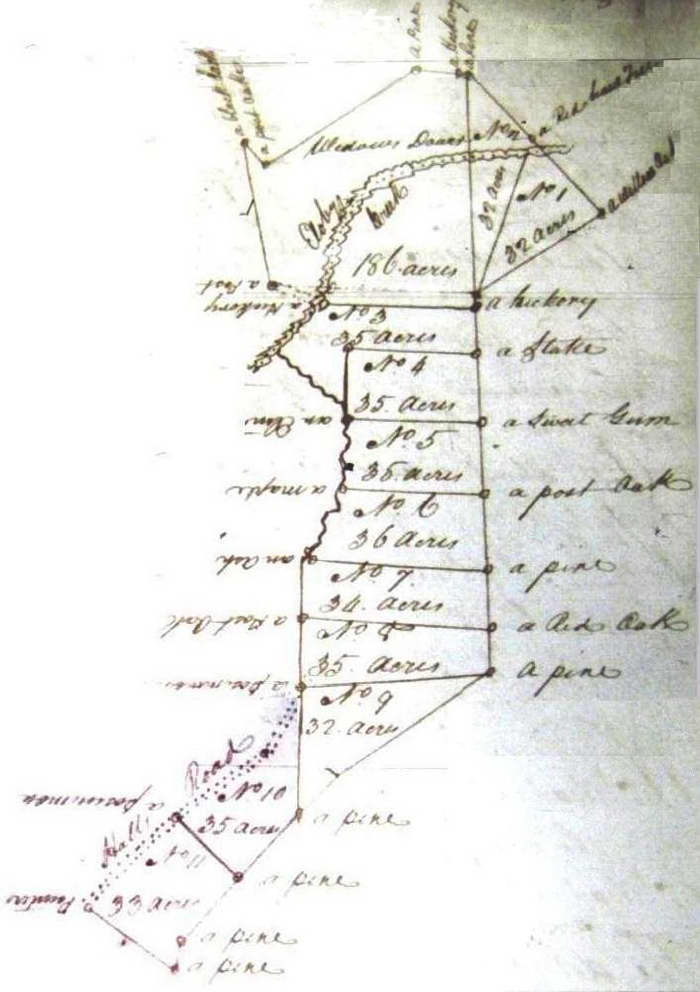 a Post
a Hickory
a Pine
a post oake
Widows Dower No
a Red
32 acres
No 1
32 acres
Creek
186 acres
a Post
a Hickory
a hickory
No 3
35 acres
a Stake
No 4
35 acres
an Elm
a Sweet Gum
No 5
35 acres
a maple
a post Oak
No 6
36 acres
an Ash
a pine
No 7
34 acres
a Post Oak
a Red Oak
No 8
35 acres
a pine
No 9
32 acres
Road
No 10
35 acres
a pine
No 11
a pine
33 acres
Pointers
a pine
a pine